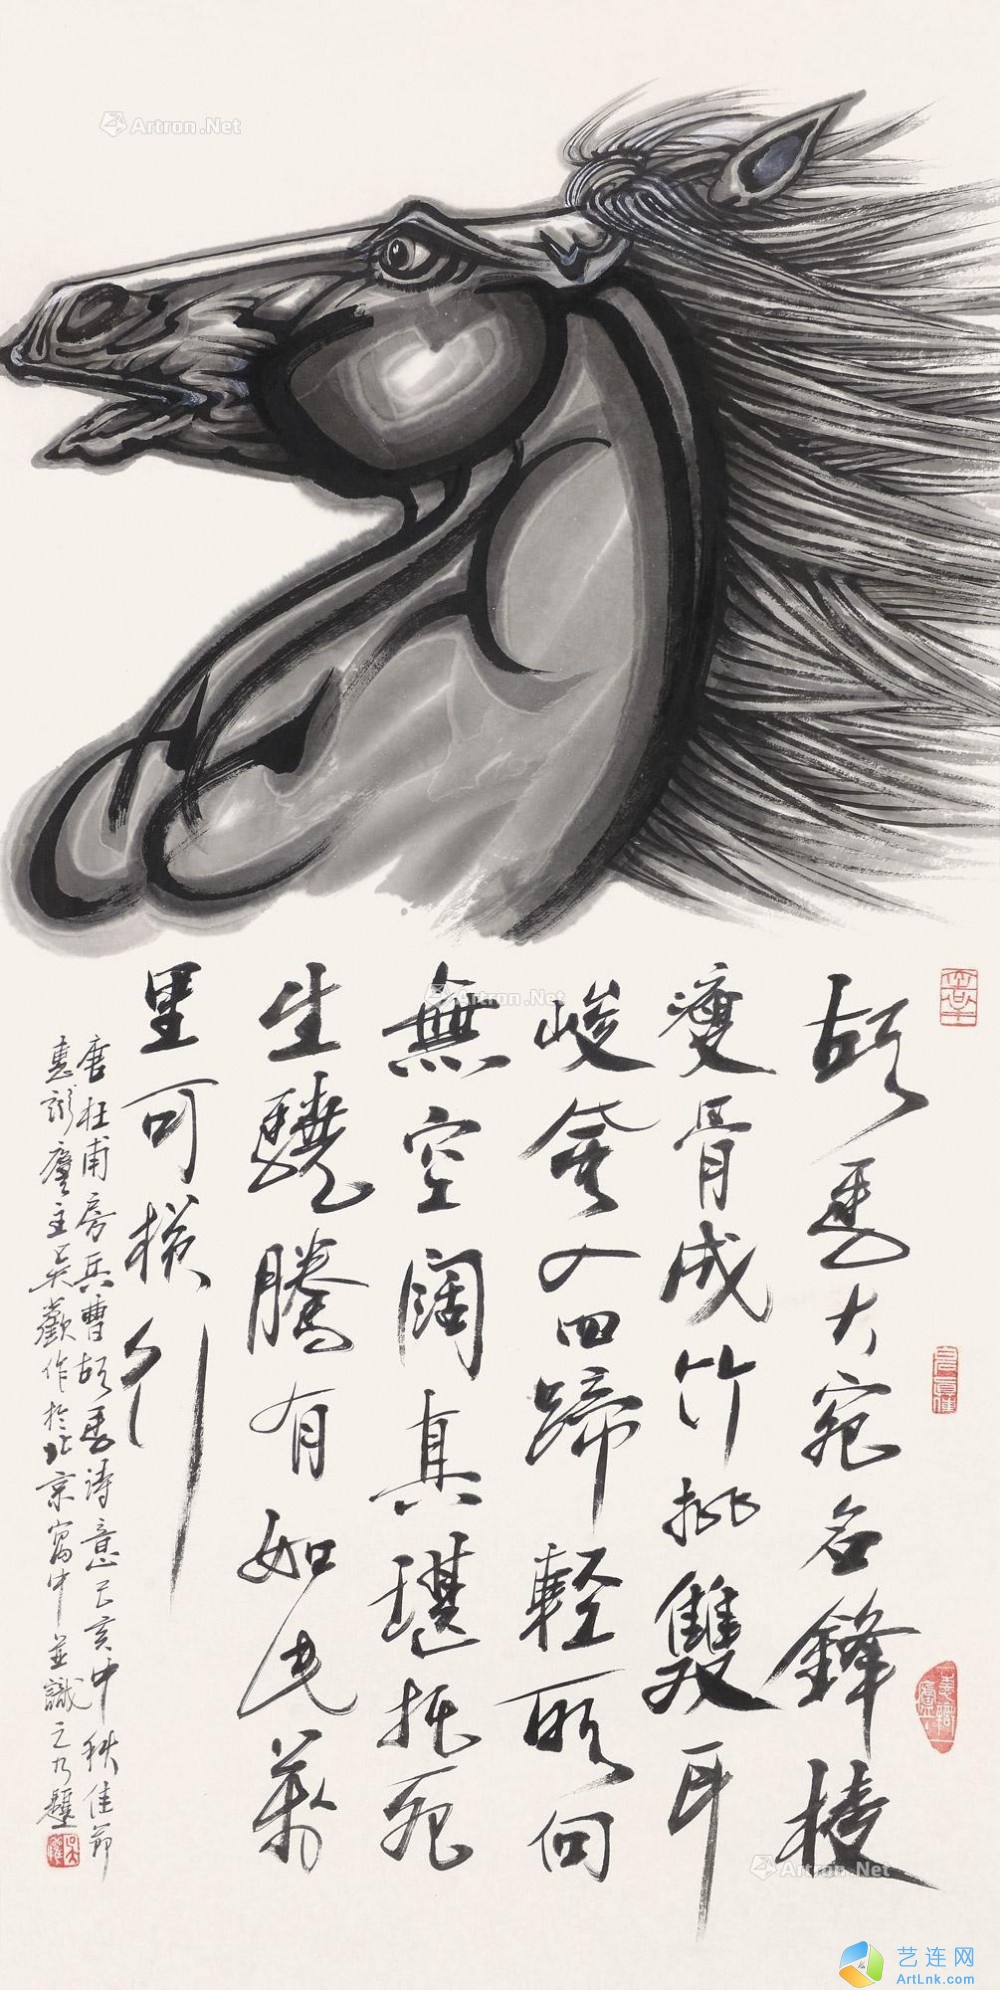 胡馬大宛名鋒稜
瘦骨成竹批雙耳
峻風入四蹄輕所向
無空闊真堪托死
生驍騰有如此萬
里可橫行
唐杜甫房兵曹胡馬詩意己亥中秋佳節
廬主吳歡作於北京寓中並識之乃題
Artron.Net
Artron.Net
Artron.Net
艺连网
ArtLnk.com